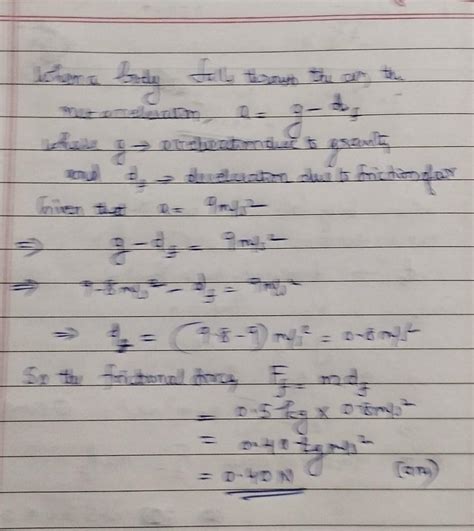 When a body falls through the air, the
net acceleration, a = g - d_f
where g → acceleration due to gravity
and d_f → deceleration due to friction of air
Given that a = 9m/s²
⇒ g - d_f = 9m/s²
⇒ 9.8m/s² - d_f = 9m/s²
⇒ d_f = (9.8-9)m/s² = 0.8m/s²
So the frictional force, F_f = md_f
= 0.5 kg × 0.8m/s²
= 0.40 kg m/s²
= 0.40 N